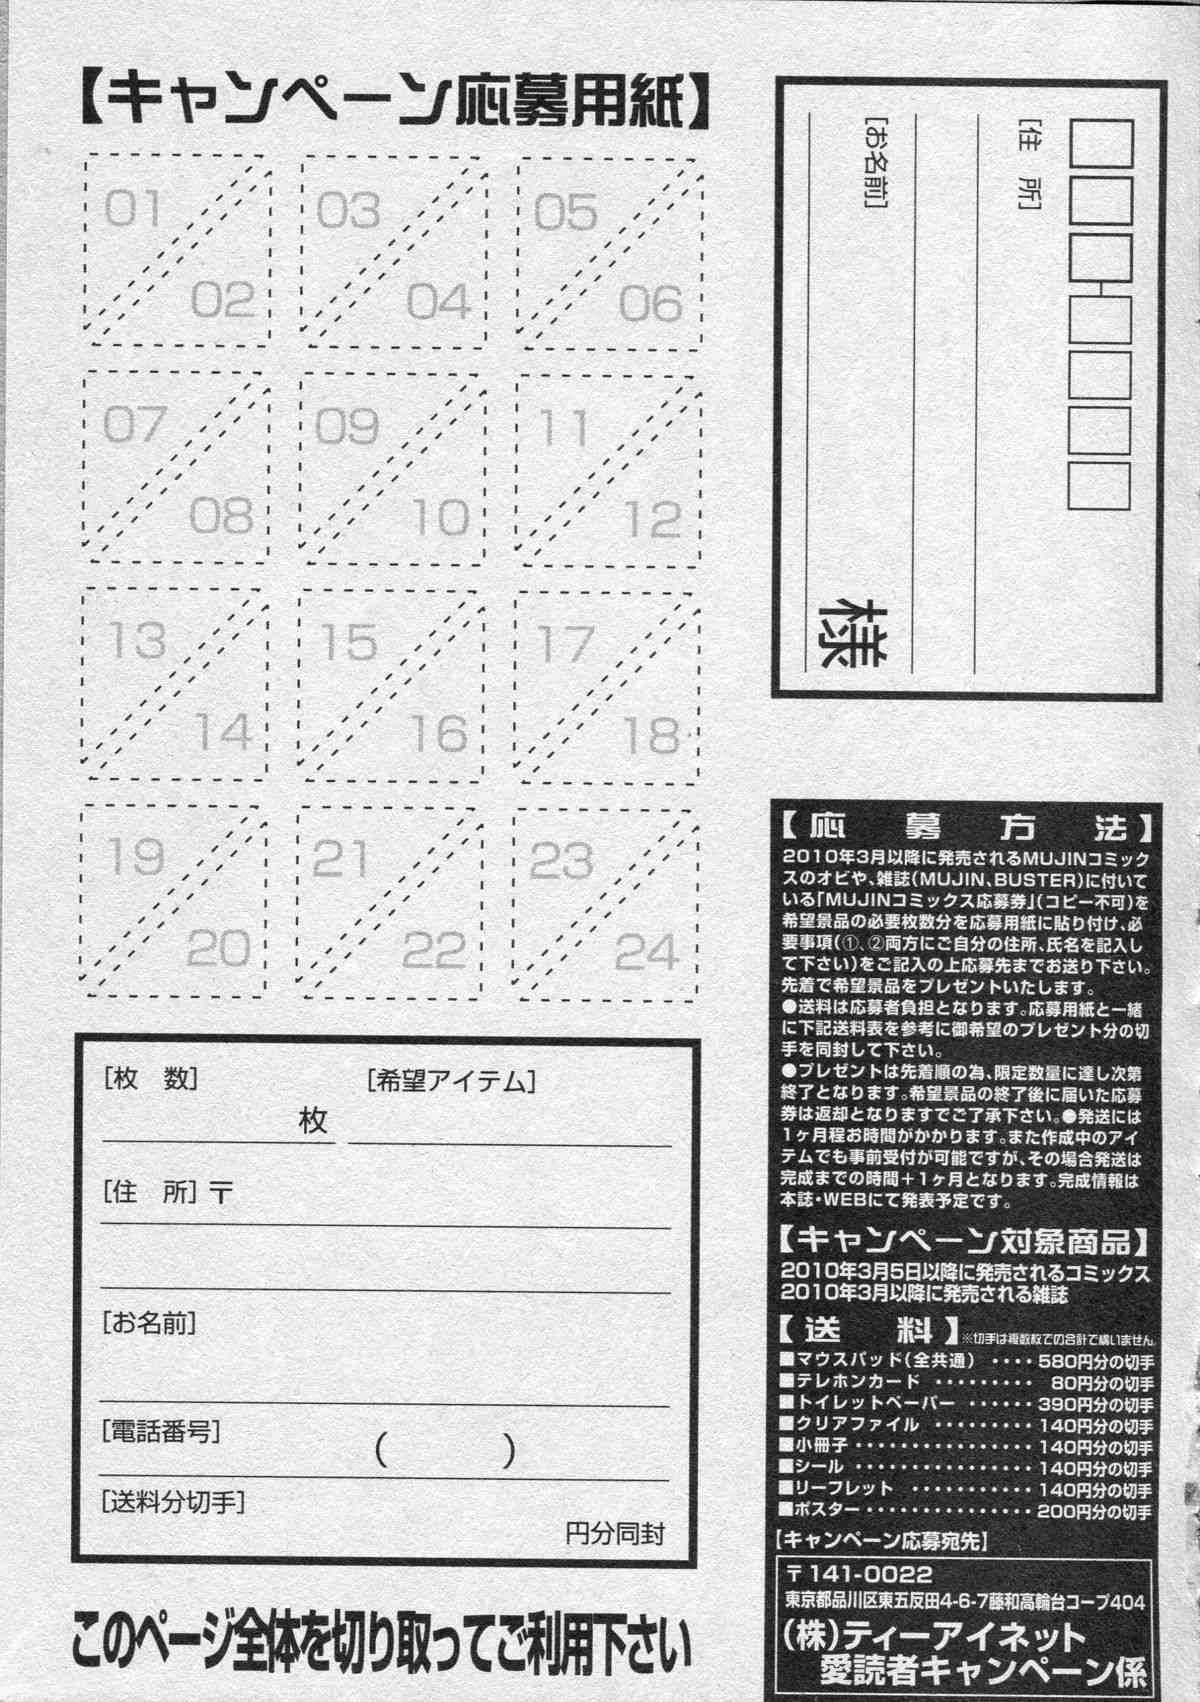 【キャンペーン応募用紙】
01
02
03
04
05
06
07
08
09
10
11
12
13
14
15
16
17
18
19
20
21
22
23
24
[枚　数]
枚
[希望アイテム]
[住　所]〒
[お名前]
[電話番号]
(　　　)
[送料分切手]
円分同封
このページ全体を切り取ってご利用下さい
[住　所]
[お名前]
様
【応募方法】
2010年3月以降に発売されるMUJINコミック
スのオビや、雑誌(MUJIN、BUSTER)に付いて
いる「MUJINコミックス応募券」(コピー不可)を
希望景品の必要枚数分を応募用紙に貼り付け、必
要事項(①、②両方にご自分の住所、氏名を記入し
て下さい)をご記入の上応募先までお送り下さい。
先着で希望景品をプレゼントいたします。
●送料は応募者負担となります。応募用紙と一緒
に下記送料表を参考に御希望のプレゼント分の切
手を同封して下さい。
●プレゼントは先着順の為、限定数量に達し次第
終了となります。希望景品の終了後に届いた応募
券は返却となりますでご了承下さい。●発送には
1ヶ月程お時間がかかります。また作成中のアイ
テムでも事前受付が可能ですが、その場合発送は
完成までの時間＋1ヶ月となります。完成情報は
本誌・WEBにて発表予定です。
【キャンペーン対象商品】
2010年3月5日以降に発売されるコミックス
2010年3月以降に発売される雑誌
【送　料】※切手は複数枚での合計で構いません。
■マウスパッド(全共通) ････580円分の切手
■テレホンカード ･････････ 80円分の切手
■トイレットペーパー ･･････390円分の切手
■クリアファイル ･････････140円分の切手
■小冊子････････････････140円分の切手
■シール ････････････････140円分の切手
■リーフレット ･･･････････140円分の切手
■ポスター･･･････････････200円分の切手
【キャンペーン応募宛先】
〒141-0022
東京都品川区東五反田4-6-7藤和高輪台コープ404
(株)ティーアイネット
愛読者キャンペーン係